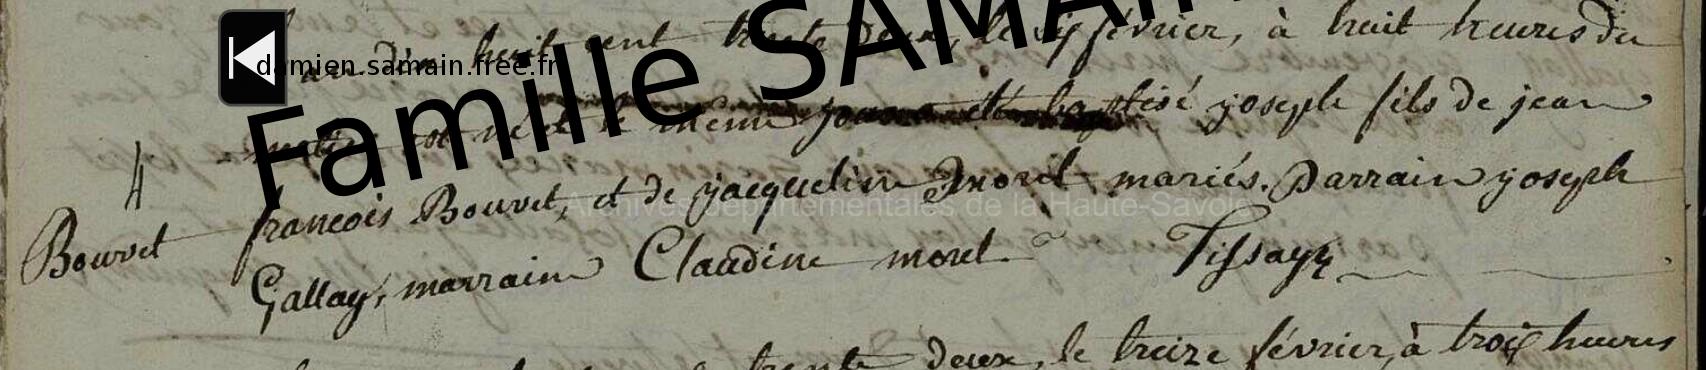 damien.samain.free.fr
Famille SAMAIN
huit cent trente deux, le février, à huit heures du
matin est né et le même jour a été baptisé joseph fils de jean
4
françois Bouvet, et de jacqueline morel mariés. Parrain joseph
Archives départementales de la Haute-Savoie
Bouvet
Gallay, marraine Claudine morel. Tissay
trente deux, le treize février, à trois heures